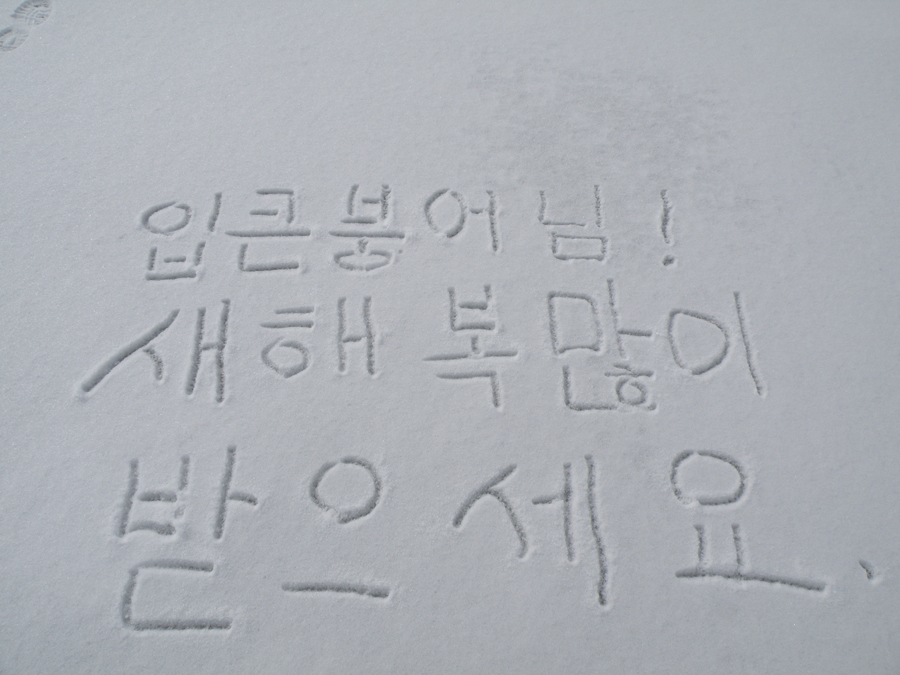 입큰붕어님!
새해 복많이
받으세요.